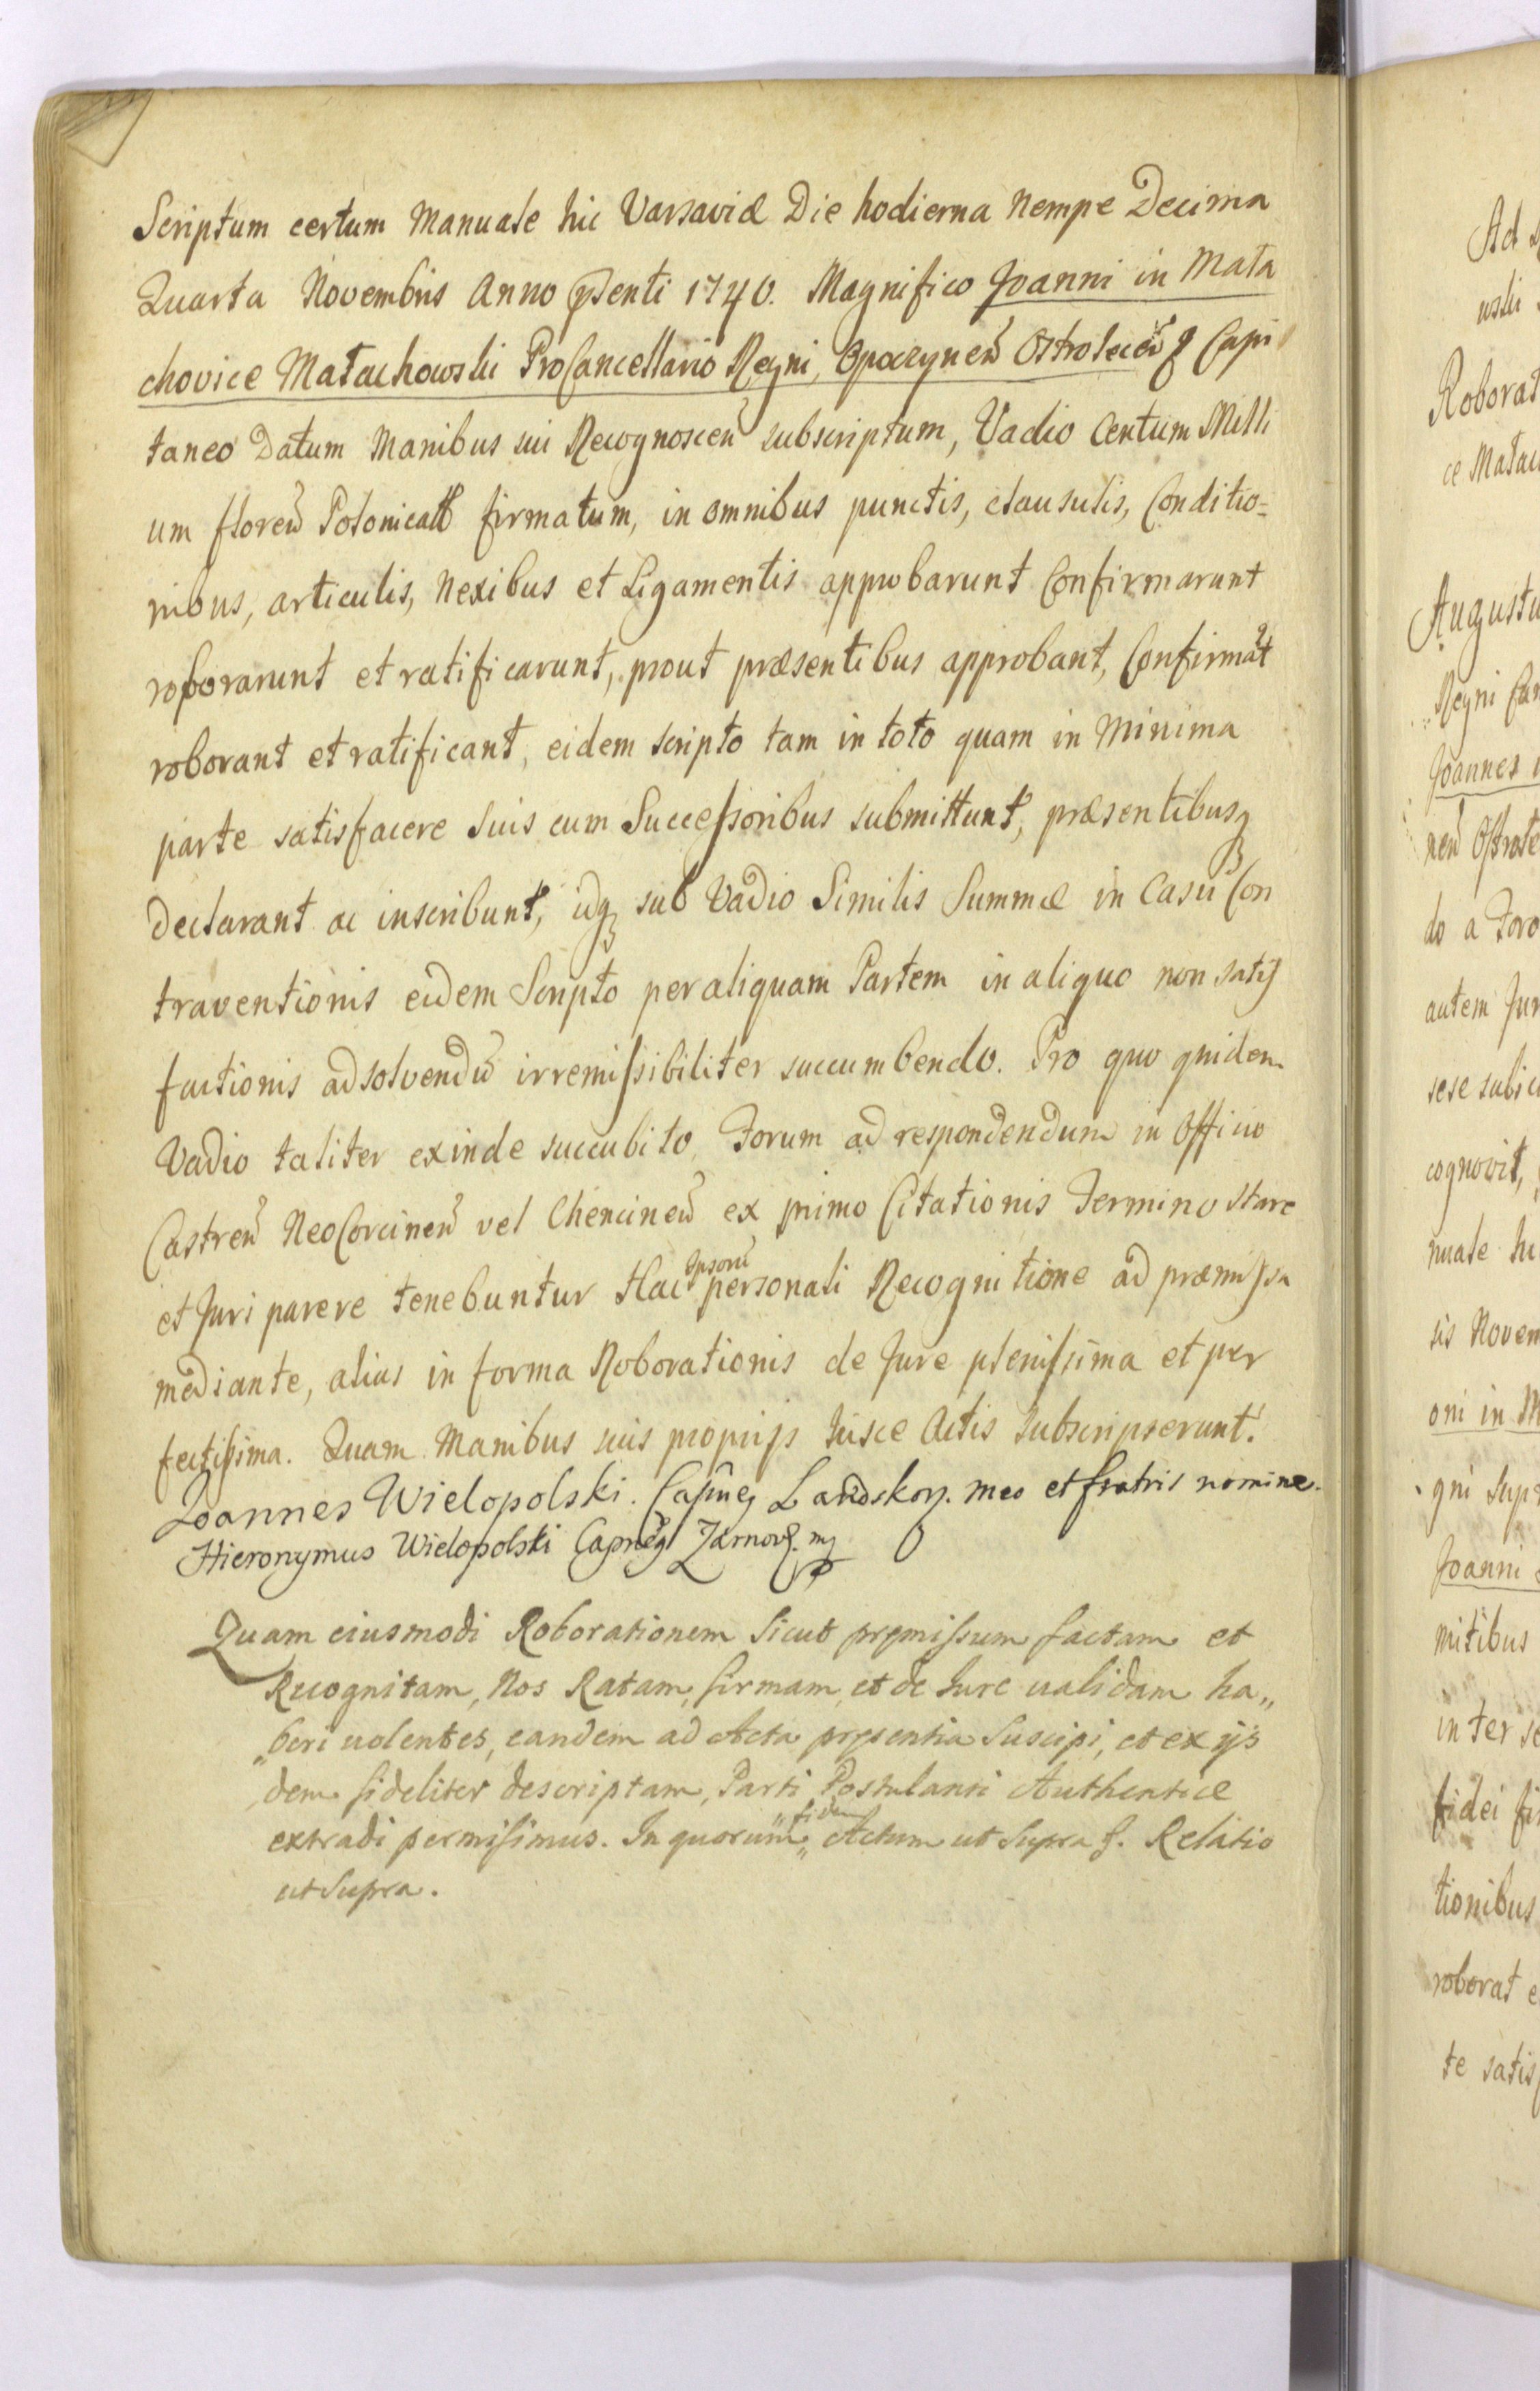 Scriptum certum Manuale hic Varsaviæ Die hodierna Nempe Decima
Quarta Novembris Anno pnsenti 1740. Magnifico Joanni in Mała
chovice Małachowski ProCancellario Regni, Opoczynen Ostrolecen & Capi
taneo Datum Manibus sui Recognoscen subscriptum, Vadio Centum Milli
um floren Polonicall firmatum, in omnibus punctis, clausulis, Conditio=
nibus, articulis, Nexibus et Ligamentis approbarunt Confirmarunt
roborarunt et ratificarunt, prout præsentibus approbant, Confirmāt
roborant et ratificant, eidem scripto tam in toto quam in Minima
parte satisfacere suis cum Successoribus submittunt, præsentibusq
declarant ac inscribunt, idq sub Vadio Similis Summæ in Casu Con
traventionis eidem Scripto per aliquam Partem in aliquo non satis
factionis ad solvendū irremissibiliter succumbendo. Pro quo quidem
Vadio taliter exinde succubito, Forum ad respondendum in Officio
Castren NeoCorcinen vel Chencinen ex primo Citationis Termino stare
et Juri parere tenebuntur Hac Ipsorū personali Recognitione ad præmissa
mediante, alias in forma Roborationis de Jure plenissima et per
fectissima. Quam Manibus suis proprijs hisce Actis subscripserunt.
Joannes Wielopolski. Capneg Landskor. meo et fratris nomine.
Hieronymus Wielopolski Capneg Żarnov. mp
Quam eiusmodi Roborationem sicut premissum factam et
Recognitam, Nos Ratam, firmam, et de Jure validam ha„
„beri volentes, eandem ad Acta presentia Suscipi, et ex ijs
dem fideliter descriptam, Parti Postulanti Authenticæ
extradi permisimus. In quorum „fidem„ Actum ut Supra f. Relatio
ut Supra.
Ad
Roborat
Augustu
Regni Can
Joannes
do a Foro
autem Jur
cognovit,
sis Novem
oni in M
gni Supr
Joanni
mitibus
in ter se
fidei fir
tionibus
roborat e
te satis